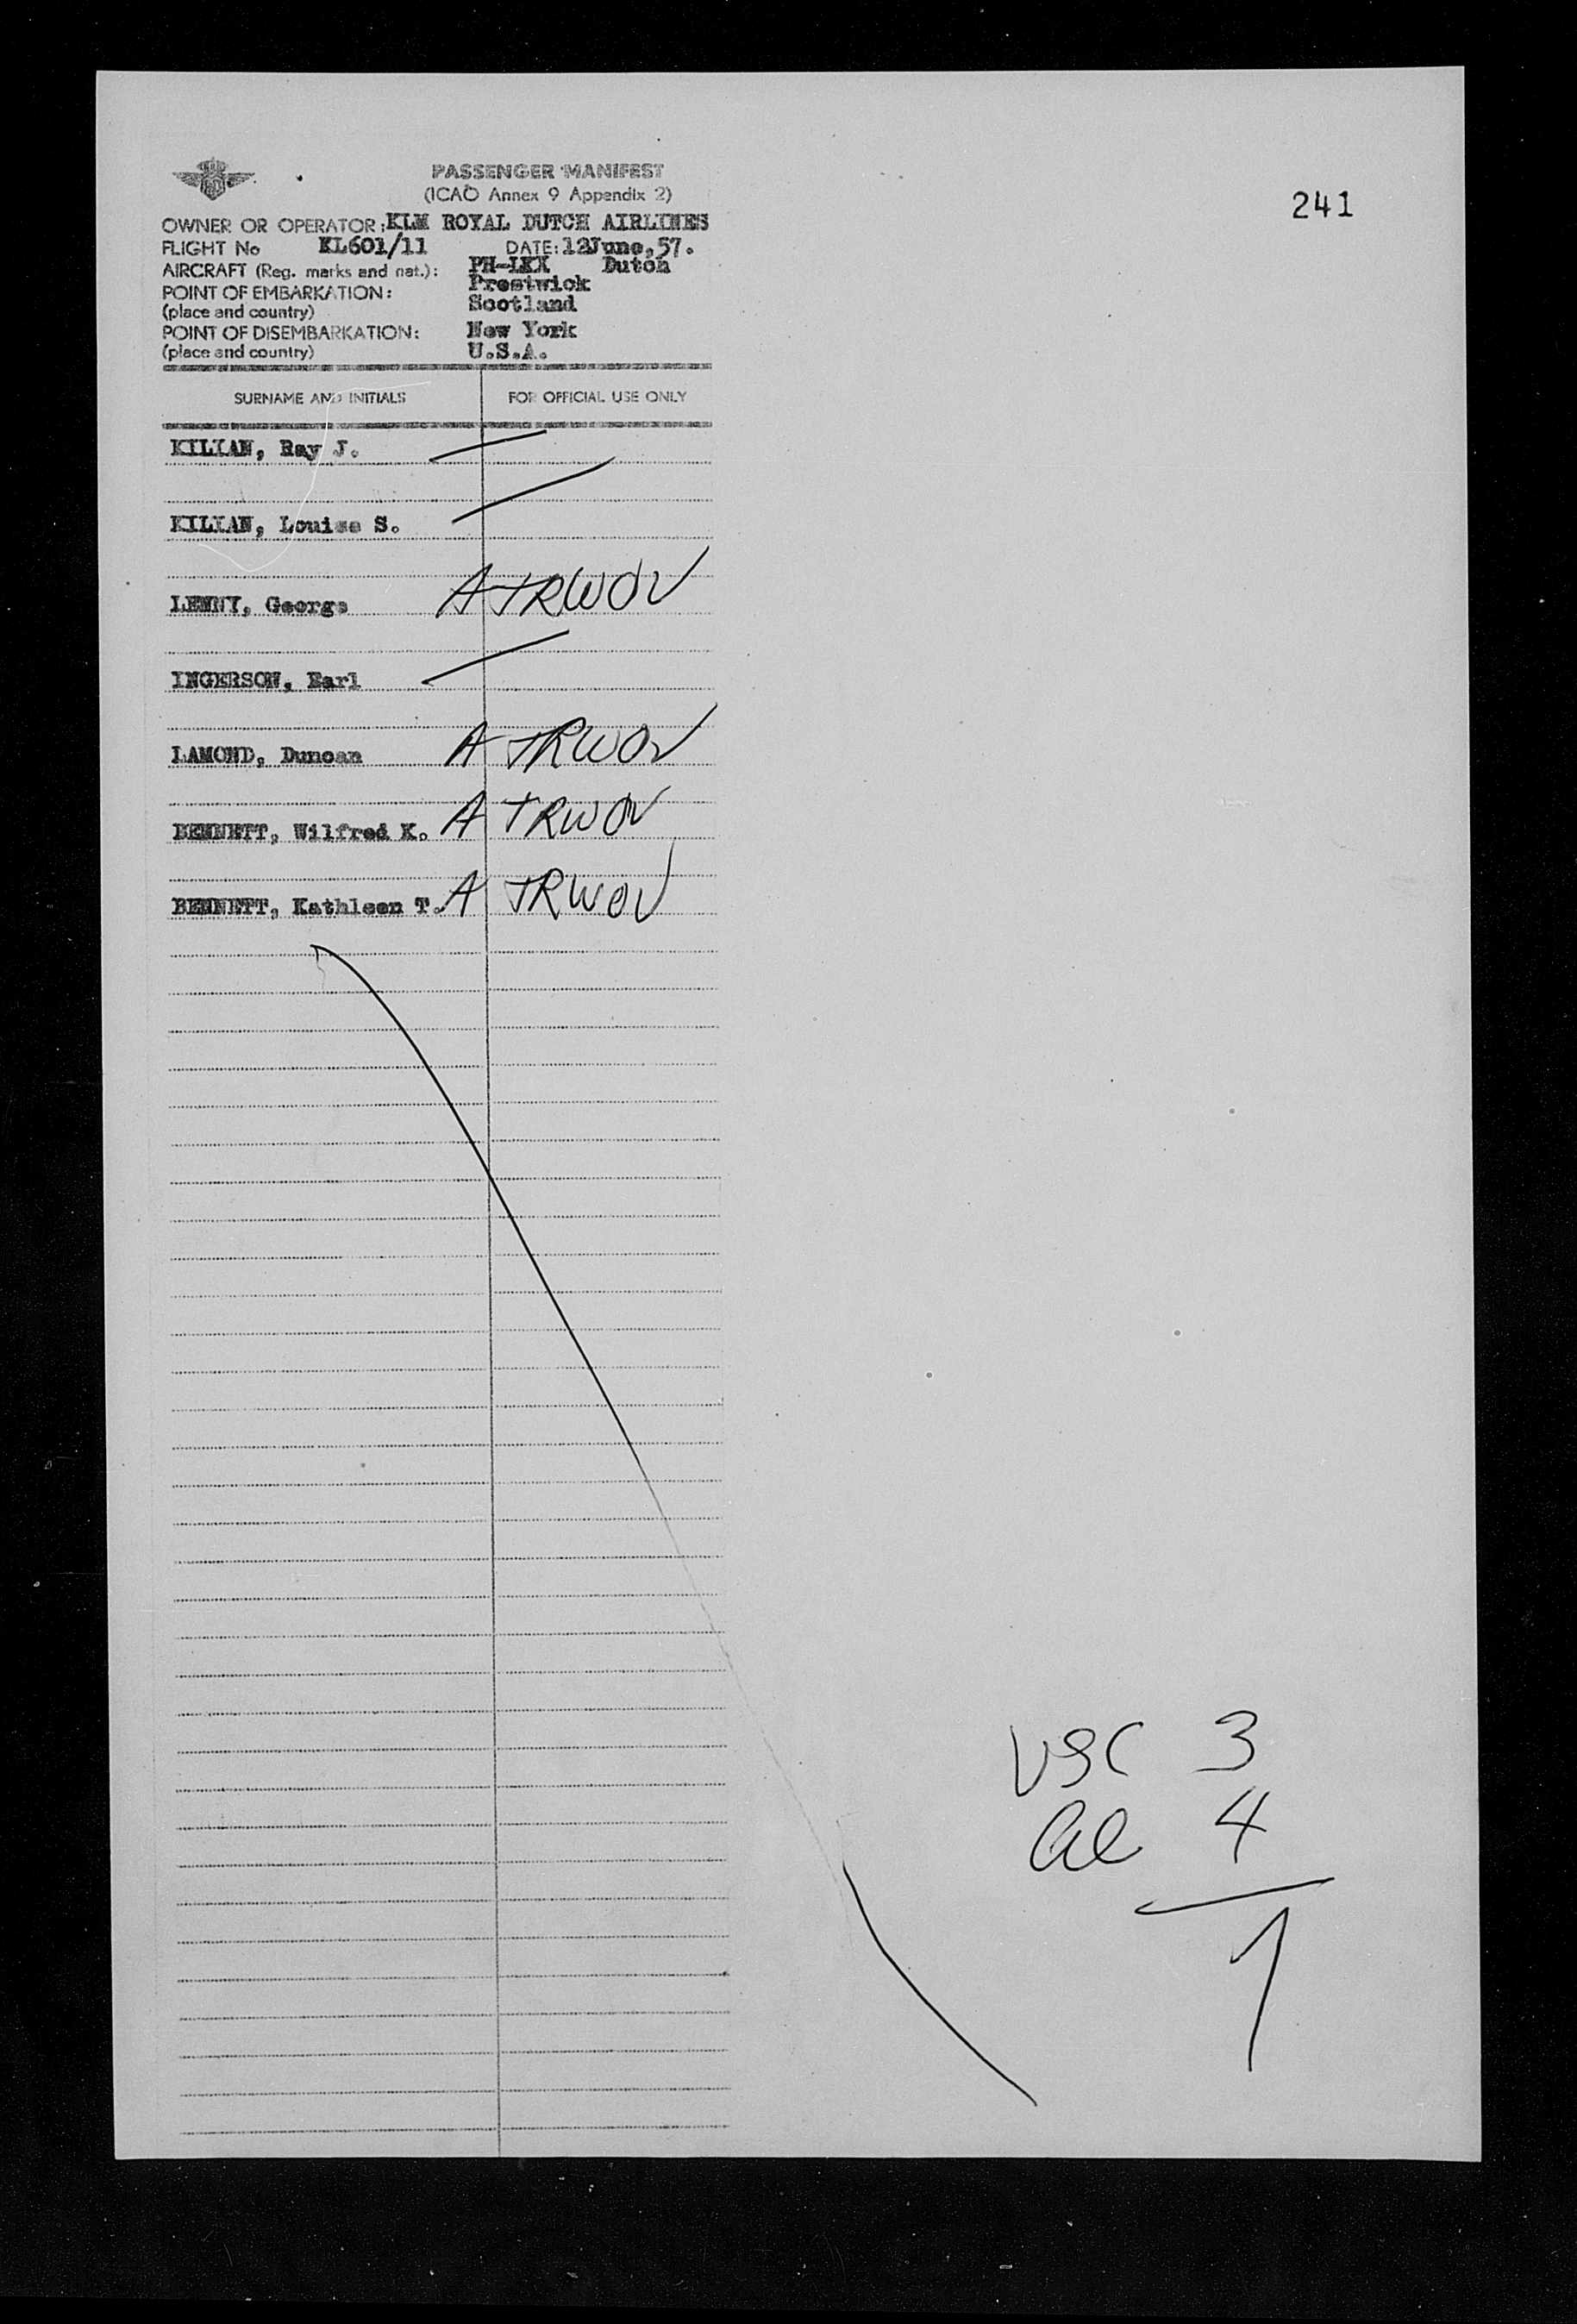 PASSENGER MANIFEST
(ICAO Annex 9 Appendix 2)
241
OWNER OR OPERATOR: KLM ROYAL DUTCH AIRLINES
FLIGHT No KL601/11 DATE: 12June,57.
AIRCRAFT (Reg. marks and nat.): PH-LKX Dutch
POINT OF EMBARKATION: Prestwick
(place and country) Scotland
POINT OF DISEMBARKATION: New York
(place and country) U.S.A.
SURNAME AND INITIALS FOR OFFICIAL USE ONLY
KILIAN, Ray J.
KILIAN, Louise S.
LENNY, George A TRWOV
INGERSON, Earl
LAMOND, Duncan A TRWOV
BENNETT, Wilfred K. A TRWOV
BENNETT, Kathleen T. A TRWOV
USC 3
al 4
7